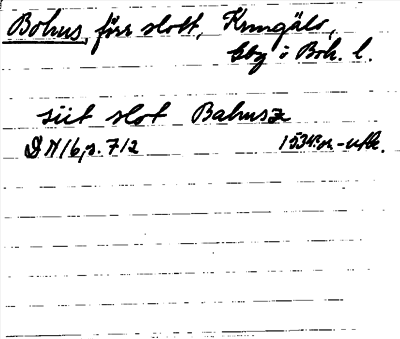 Bohus, förr slott, Kungälv,
Gbg o Boh. l.
siit slot Bahusz
DN 16, s. 712 1532 or.-utk.